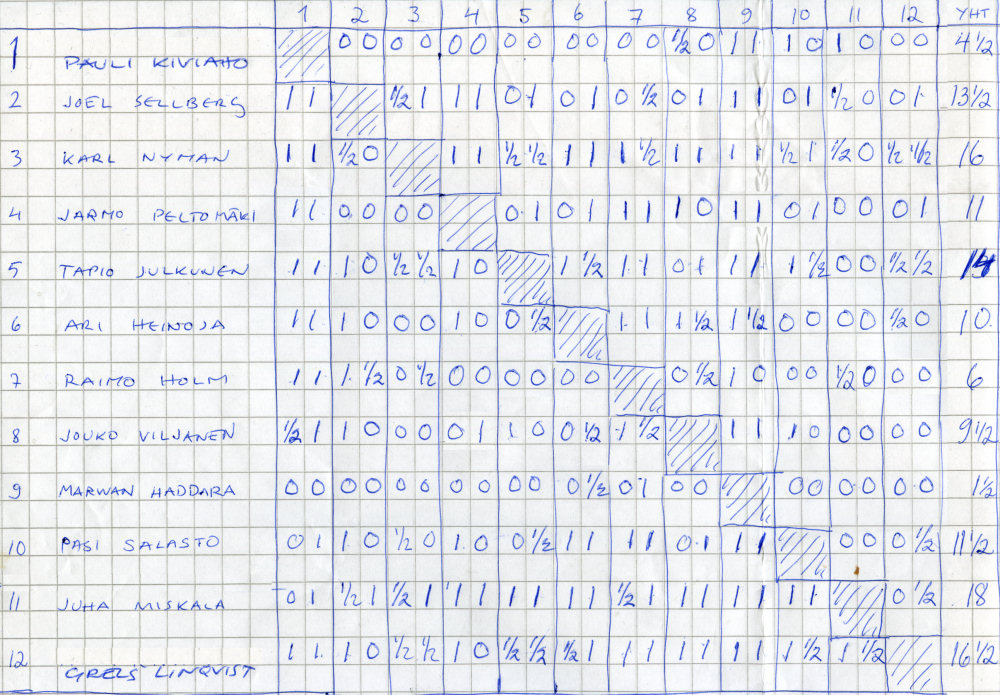 1 2 3 4 5 6 7 8 9 10 11 12 YHT
1 PAULI KIVIAHO 0 0 0 0 0 0 0 0 0 0 0 0 ½ 0 1 1 1 0 1 0 0 0 4½
2 JOEL SELLBERG 1 1 ½ 1 1 1 0 1 0 1 0 ½ 0 1 1 1 0 1 ½ 0 0 1 13½
3 KARL NYMAN 1 1 ½ 0 1 1 ½ ½ 1 1 1 ½ 1 1 1 1 ½ 1 ½ 0 ½ ½ 16
4 JARMO PELTOMÄKI 1 1 0 0 0 0 0 1 0 1 1 1 1 0 1 1 0 1 0 0 0 1 11
5 TAPIO JULKUNEN 1 1 1 0 ½ ½ 1 0 1 ½ 1 1 0 1 1 1 1 ½ 0 0 ½ ½ 14
6 ARI HEINOJA 1 1 1 0 0 0 1 0 0 ½ 1 1 1 ½ 1 ½ 0 0 0 0 ½ 0 10
7 RAIMO HOLM 1 1 1 ½ 0 ½ 0 0 0 0 0 0 0 ½ 1 0 0 0 ½ 0 0 0 6
8 JOUKO VILJANEN ½ 1 1 0 0 0 0 1 1 0 0 ½ 1 ½ 1 1 1 0 0 0 0 0 9½
9 MARWAN HADDARA 0 0 0 0 0 0 0 0 0 0 0 ½ 0 1 0 0 0 0 0 0 0 0 1½
10 PASI SALASTO 0 1 1 0 ½ 0 1 0 0 ½ 1 1 1 1 0 1 1 1 0 0 0 ½ 11½
11 JUHA MISKALA 0 1 ½ 1 ½ 1 1 1 1 1 1 1 ½ 1 1 1 1 1 1 1 0 ½ 18
12 GRELS LINQVIST 1 1 1 0 ½ ½ 1 0 ½ ½ ½ 1 1 1 1 1 1 1 1 ½ 1 ½ 16½